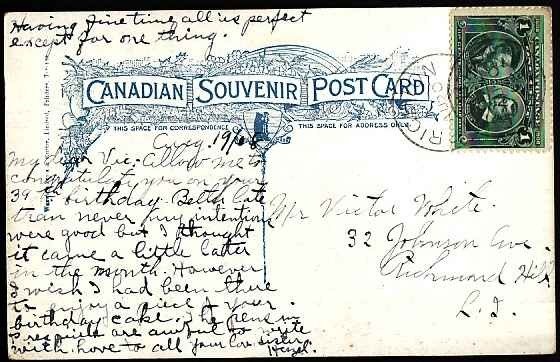 Having fine time all is perfect
except for one thing.
CANADIAN SOUVENIR POST CARD
THIS SPACE FOR CORRESPONDENCE
THIS SPACE FOR ADDRESS ONLY
Aug. 19/08
My dear Vic. Allow me to
congratulate you on your
39th birthday. Better late
than never my intentions
were good but I thought
it came a little later
in the month. However
I wish I had been there
to enjoy a piece of your
birthday cake. The pens in
P.O. are awful to write
with love to all your lov. sister
Hazel.
Mr Victor White.
32 Johnson Ave
Richmond Hill
L. I.